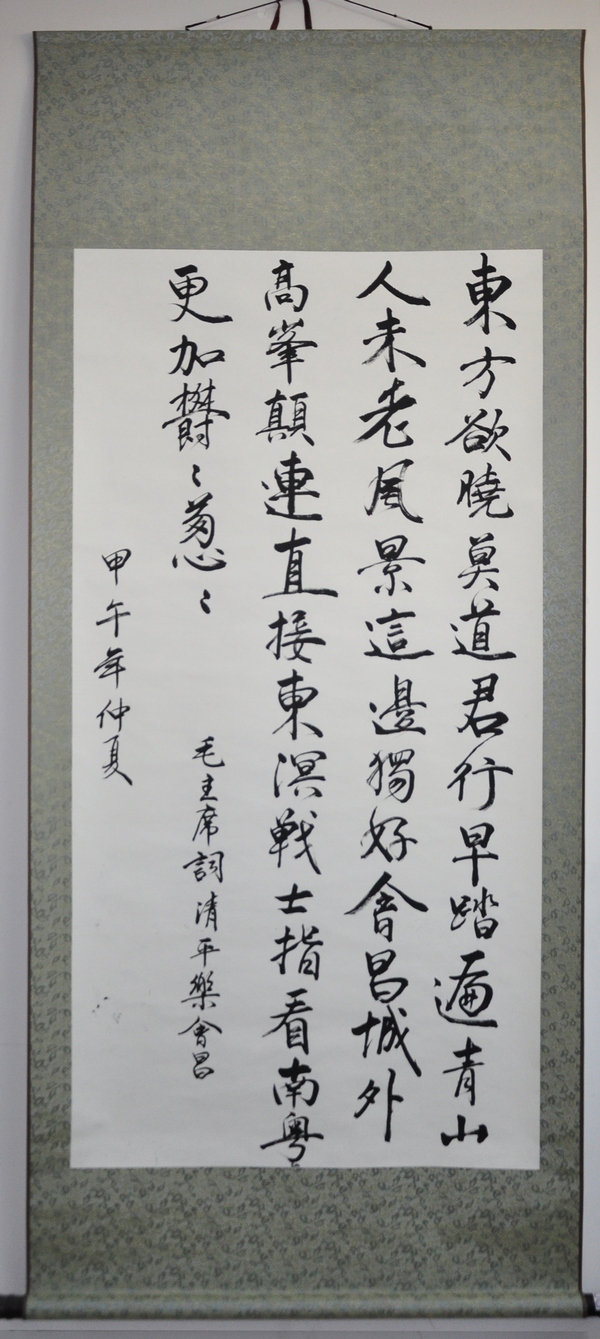 東方欲曉莫道君行早踏遍青山
人未老風景這邊獨好會昌城外
高峯顛連直接東溟戰士指看南粤
更加欝〻葱〻
毛主席詞清平樂會昌
甲午年仲夏